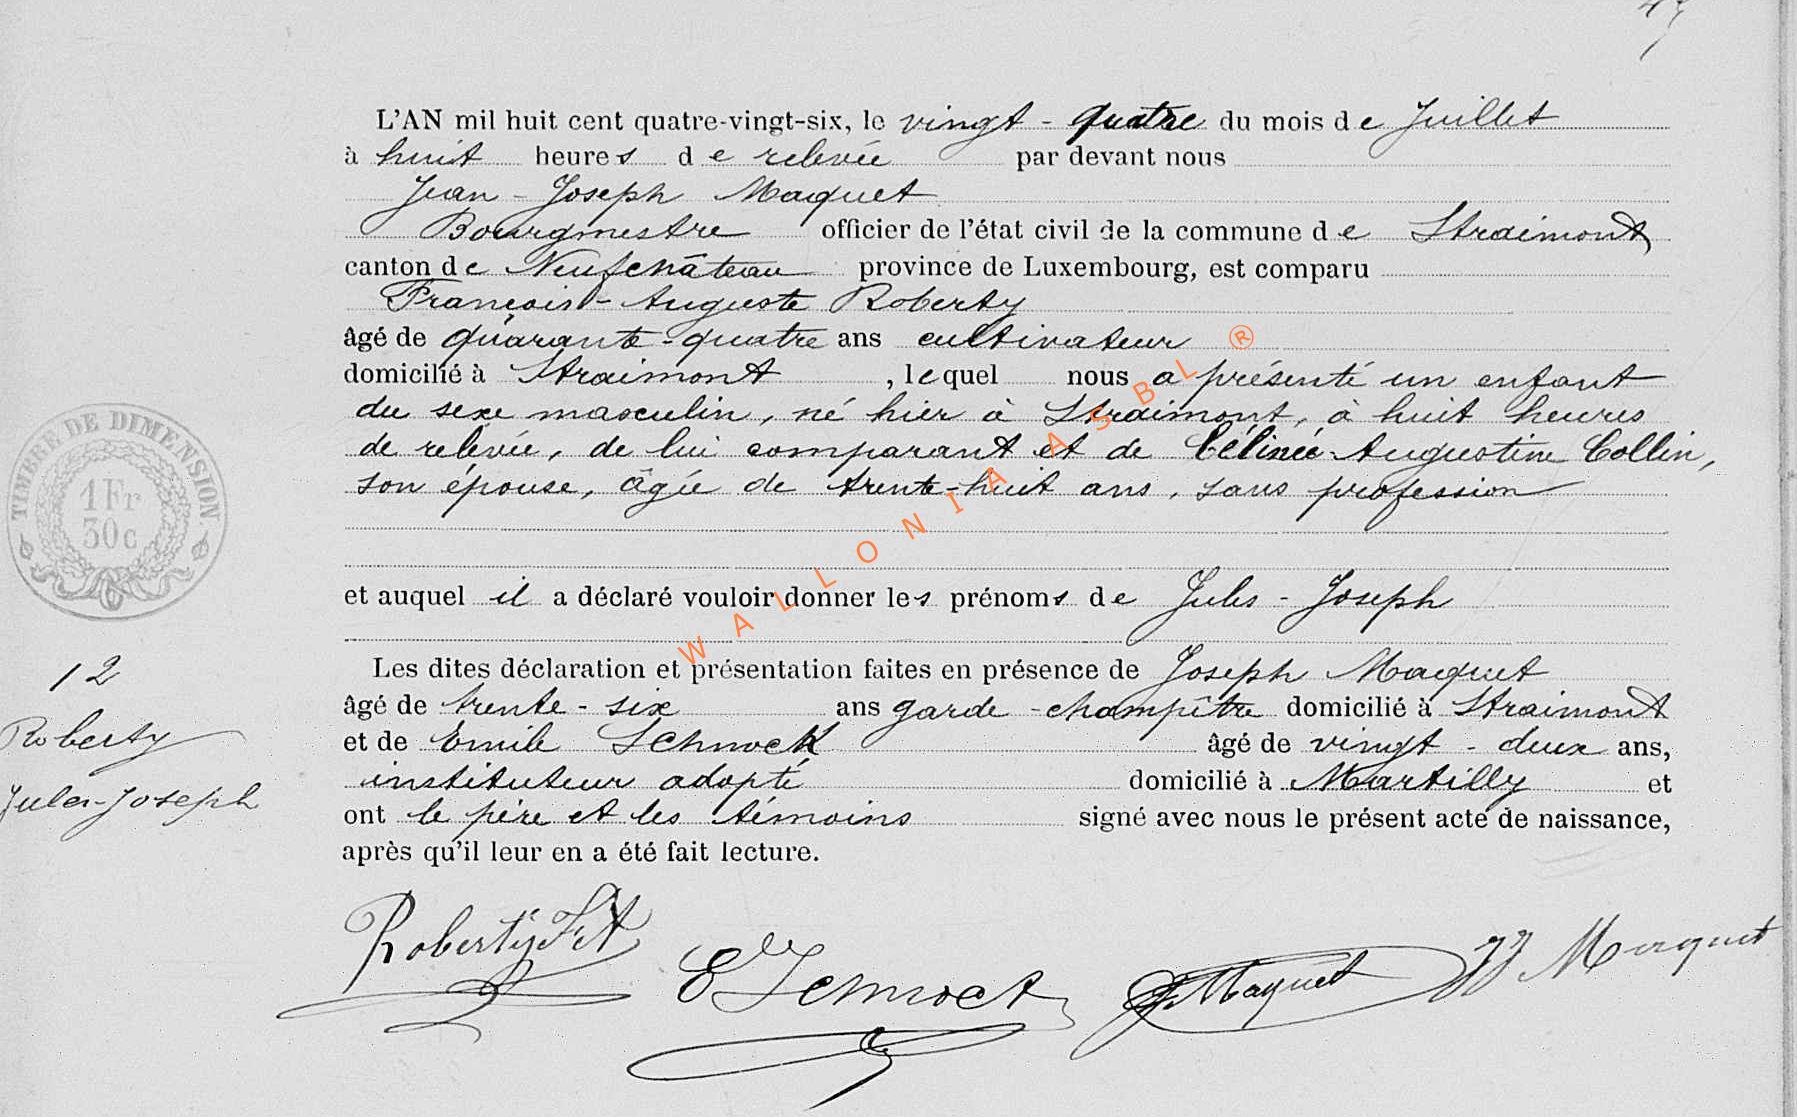 L'AN mil huit cent quatre-vingt-six, le vingt - quatre du mois de Juillet
à huit heures de relevée par devant nous
Jean - Joseph Maquet
Bourgmestre officier de l'état civil de la commune de Straimont
canton de Neufchâteau province de Luxembourg, est comparu
François - Auguste Roberty
âgé de quarante-quatre ans cultivateur
domicilié à Straimont , lequel nous a présenté un enfant
du sexe masculin, né hier à Straimont, à huit heures
de relevée, de lui comparant et de Célinée Augustine Collin,
son épouse, âgée de trente-huit ans, sans profession
et auquel il a déclaré vouloir donner les prénoms de Jules - Joseph
Les dites déclaration et présentation faites en présence de Joseph Maquet
âgé de trente - six ans garde - champêtre domicilié à Straimont
et de Emile Schnock âgé de vingt - deux ans,
instituteur adopté domicilié à Martilly et
ont le père et les témoins signé avec nous le présent acte de naissance,
après qu'il leur en a été fait lecture.
TIMBRE DE DIMENSION
1 Fr
30 c
12
Roberty
Jules-Joseph
Roberty F A
E Schnock
J. Maquet
JJ Maquet
WALLONIA ASBL ®